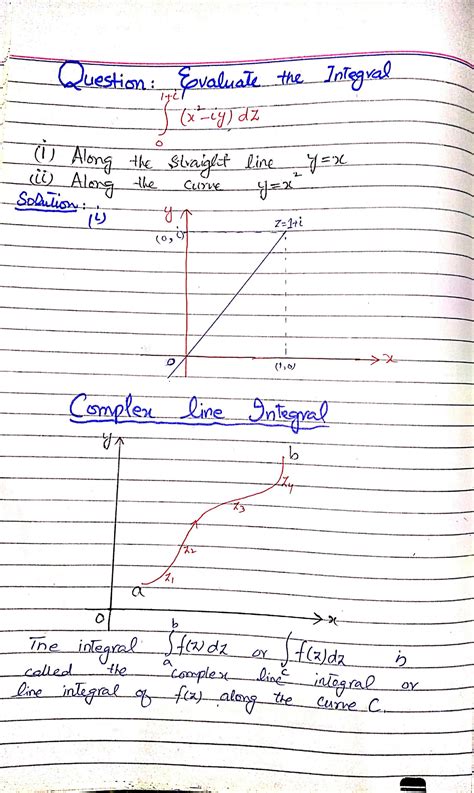 Question: Evaluate the Integral
1+i
∫ (x²-iy) dz
0
(i) Along the straight line y=x
(ii) Along the curve y=x²
Solution:
(i)
y
(0, i)
z=1+i
O
(1,0)
x
Complex line Integral
y
b
z4
z3
z2
z1
a
O
x
The integral ∫ₐᵇ f(z)dz or ∫_c f(z)dz is
called the complex line integral or
line integral of f(z) along the curve C.